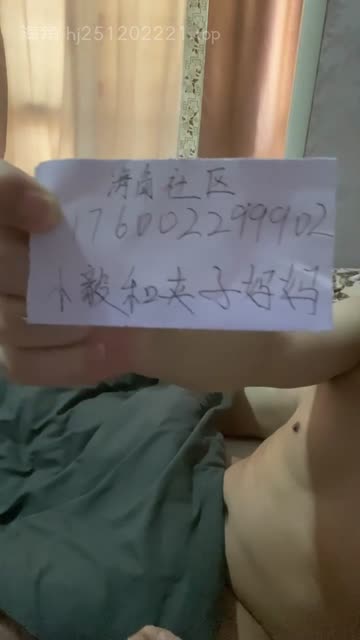 海角 hj251202221.top
海角社区
176002299902
小毅和夹子妈妈